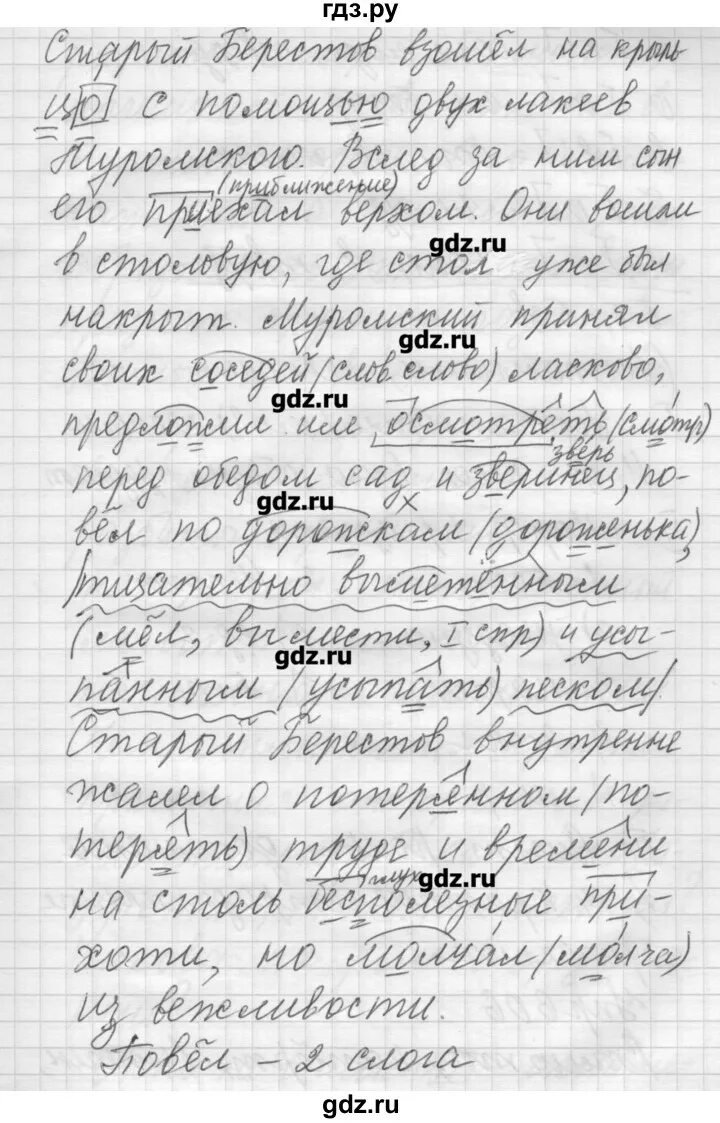 гдз.ру
Старый Берестов взошёл на крыль
цо с помощью двух лакеев
Муромского. Вслед за ним сын
(приближение)
его приехал верхом. Они вошли
gdz.ru
в столовую, где стол уже был
накрыт. Муромский принял
gdz.ru
своих соседей (слов слово) ласково,
gdz.ru
предложил им осмотреть (смотр)
зверь
перед обедом сад и зверинец, по-
gdz.ru
вёл по дорожкам (дороженька),
тщательно выметенным
(мёл, вымести, I спр) и усы-
gdz.ru
панным (усыпать) песком.
Старый Берестов внутренне
жалел о потерянном (по-
терять) труде и времени
глух
gdz.ru
на столь бесполезные при-
хоти, но молчал (молча)
из вежливости.
Повёл – 2 слога
gdz.ru